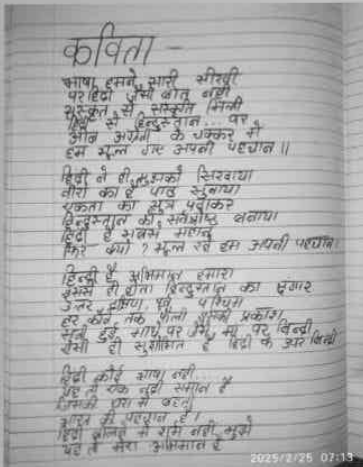 कविता -
भाषा हमने सारी सीखी
पर हिंदी जैसी कोई नहीं
संस्कृत से संस्कृति मिली
हिंदी से हिन्दुस्तान... पर
के चक्कर में
हम भूल गए अपनी पहचान ||
हिंदी ने ही मुझको सिखाया
वीरों का है पाठ सुनाया
एकता का सूत्र पढ़ाकर
हिन्दुस्तान को सर्वश्रेष्ठ बनाया
हिंदी है सबसे महान
फिर क्यों ? भूल रहे हम अपनी पहचान।
हिन्दी है अभिमान हमारा
इससे ही होता हिन्दुस्तान का श्रृंगार
उत्तर दक्षिण पूर्व पश्चिम
हर कोने तक फैली इसकी प्रकाश
माथे पर जैसे माँ पर बिन्दी
ऐसी ही सुशोभित है हिंदी के ऊपर बिन्दी
हिंदी कोई भाषा नहीं...
यह तो एक नदी समान है
जिसकी धारा में बहती
भारत की पहचान है।
हिंदी बोलने में शर्म नहीं मुझे
यह तो मेरा अभिमान है
2025/2/25 07:13